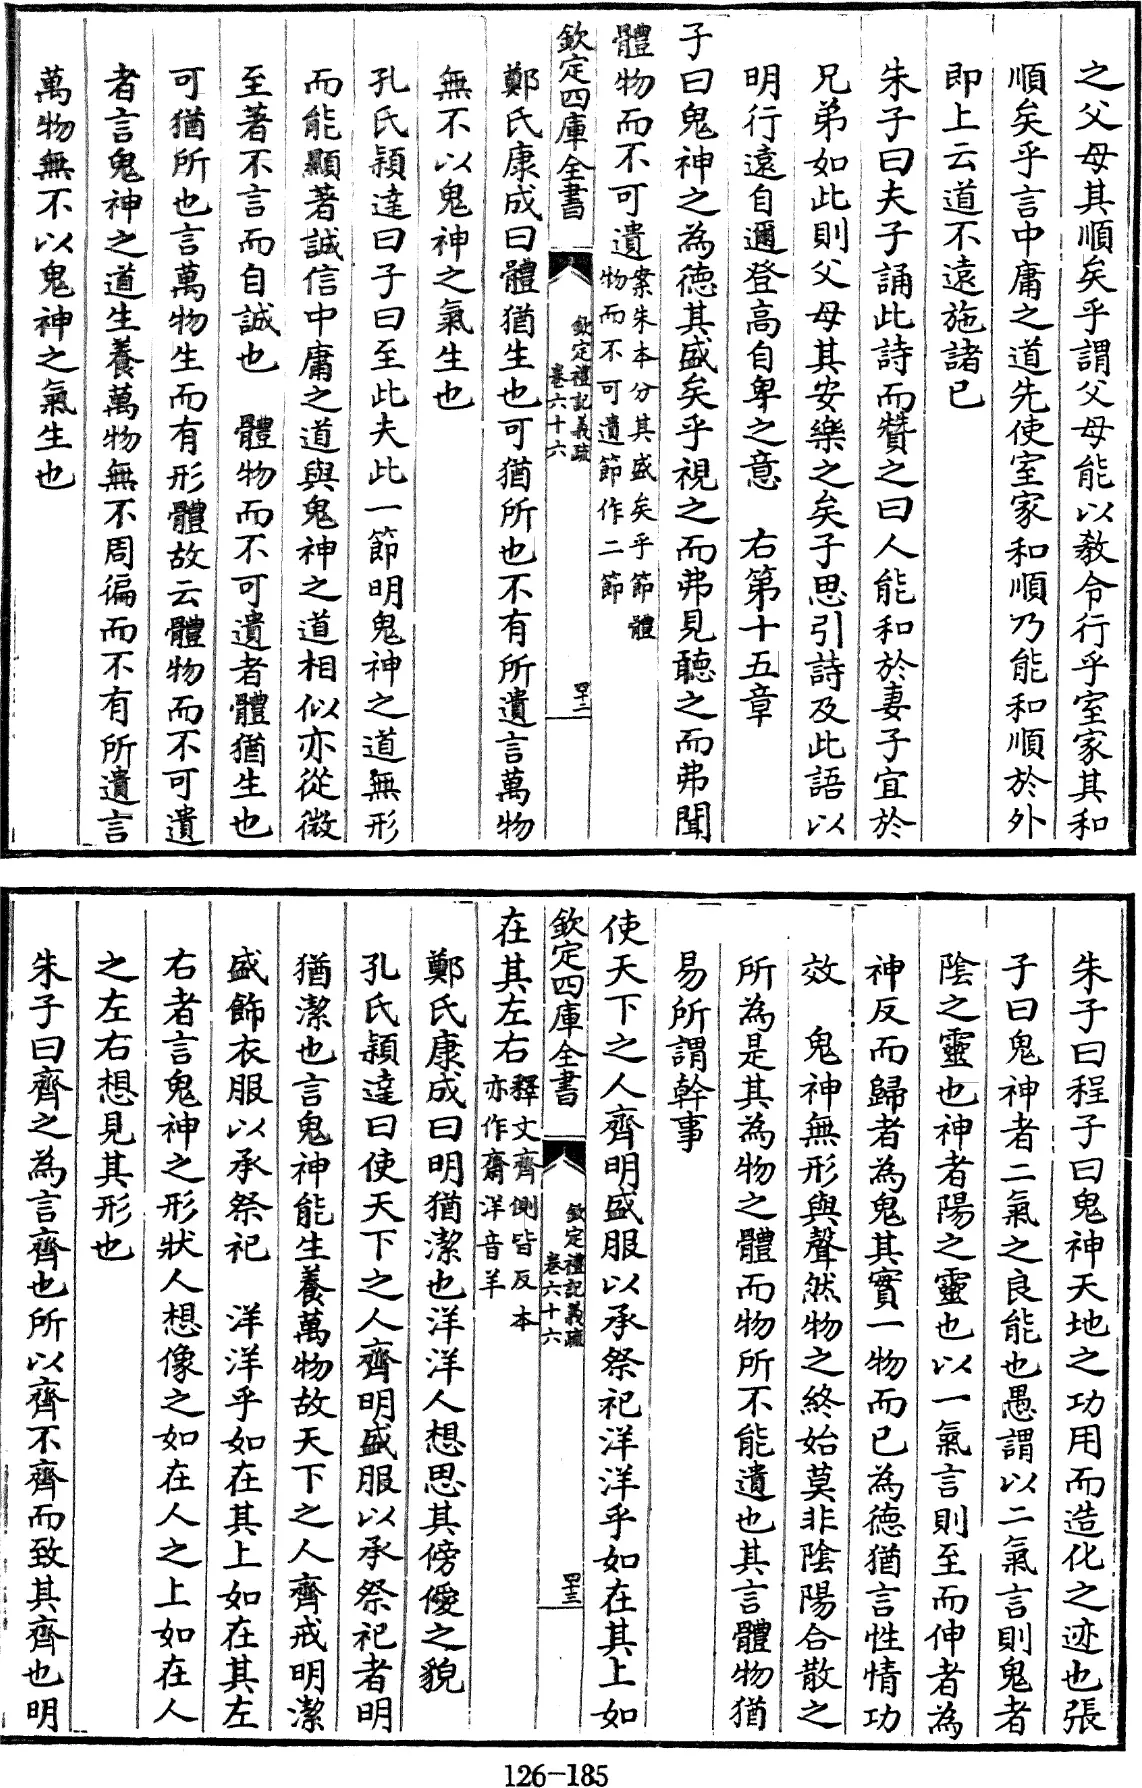 之父母其順矣乎謂父母能以教令行乎室家其和
順矣乎言中庸之道先使室家和順乃能和順於外
即上云道不遠施諸已
朱子曰夫子誦此詩而贊之曰人能和於妻子宜於
兄弟如此則父母其安樂之矣子思引詩及此語以
明行遠自邇登高自卑之意　右第十五章
子曰鬼神之為徳其盛矣乎視之而弗見聽之而弗聞
體物而不可遺案朱本分其盛矣乎節體
物而不可遺節作二節
欽定四庫全書
欽定禮記義疏
卷六十六
四十二
鄭氏康成曰體猶生也可猶所也不有所遺言萬物
無不以鬼神之氣生也
孔氏穎達曰子曰至此夫此一節明鬼神之道無形
而能顯著誠信中庸之道與鬼神之道相似亦從微
至著不言而自誠也　體物而不可遺者體猶生也
可猶所也言萬物生而有形體故云體物而不可遺
者言鬼神之道生養萬物無不周徧而不有所遺言
萬物無不以鬼神之氣生也
朱子曰程子曰鬼神天地之功用而造化之迹也張
子曰鬼神者二氣之良能也愚謂以二氣言則鬼者
陰之靈也神者陽之靈也以一氣言則至而伸者為
神反而歸者為鬼其實一物而已為徳猶言性情功
效　鬼神無形與聲然物之終始莫非陰陽合散之
所為是其為物之體而物所不能遺也其言體物猶
易所謂幹事
使天下之人齊明盛服以承祭祀洋洋乎如在其上如
欽定四庫全書
欽定禮記義疏
卷六十六
四十三
在其左右釋文齊側皆反本
亦作齋洋音羊
鄭氏康成曰明猶潔也洋洋人想思其傍僾之貌
孔氏穎達曰使天下之人齊明盛服以承祭祀者明
猶潔也言鬼神能生養萬物故天下之人齊戒明潔
盛飾衣服以承祭祀　洋洋乎如在其上如在其左
右者言鬼神之形狀人想像之如在人之上如在人
之左右想見其形也
朱子曰齊之為言齊也所以齊不齊而致其齊也明
126-185